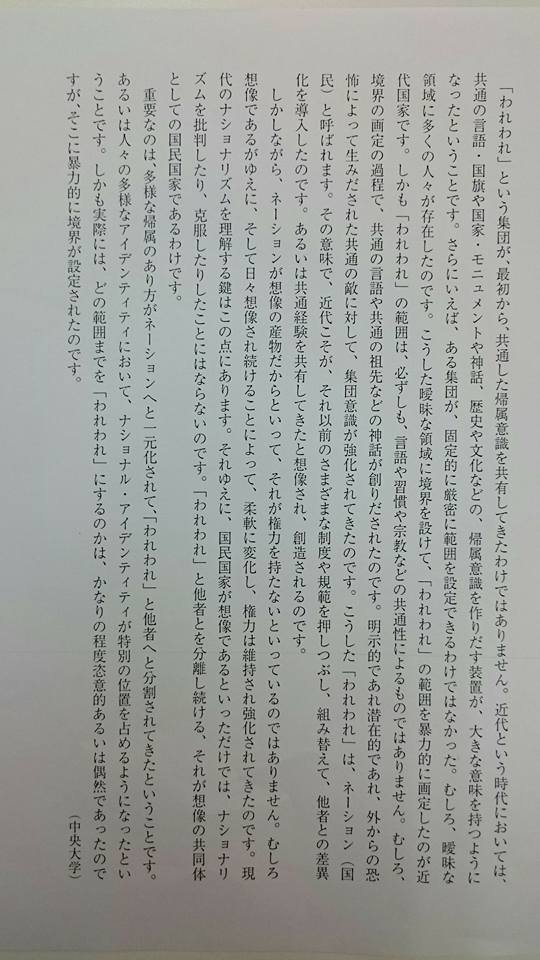 「われわれ」という集団が、最初から、共通した帰属意識を共有してきたわけではありません。近代という時代においては、
共通の言語・国旗や国家・モニュメントや神話、歴史や文化などの、帰属意識を作りだす装置が、大きな意味を持つように
なったということです。さらにいえば、ある集団が、固定的に厳密に範囲を設定できるわけではなかった。むしろ、曖昧な
領域に多くの人々が存在したのです。こうした曖昧な領域に境界を設けて、「われわれ」の範囲を暴力的に画定したのが近
代国家です。しかも「われわれ」の範囲は、必ずしも、言語や習慣や宗教などの共通性によるものではありません。むしろ、
境界の画定の過程で、共通の言語や共通の祖先などの神話が創りだされたのです。明示的であれ潜在的であれ、外からの恐
怖によって生みだされた共通の敵に対して、集団意識が強化されてきたのです。こうした「われわれ」は、ネーション（国
民）と呼ばれます。その意味で、近代こそが、それ以前のさまざまな制度や規範を押しつぶし、組み替えて、他者との差異
化を導入したのです。あるいは共通経験を共有してきたと想像され、創造されるのです。
しかしながら、ネーションが想像の産物だからといって、それが権力を持たないといっているのではありません。むしろ
想像であるがゆえに、そして日々想像され続けることによって、柔軟に変化し、権力は維持され強化されてきたのです。現
代のナショナリズムを理解する鍵はこの点にあります。それゆえに、国民国家が想像であるといっただけでは、ナショナリ
ズムを批判したり、克服したりしたことにはならないのです。「われわれ」と他者とを分離し続ける、それが想像の共同体
としての国民国家であるわけです。
重要なのは、多様な帰属のあり方がネーションへと一元化されて、「われわれ」と他者へと分割されてきたということです。
あるいは人々の多様なアイデンティティにおいて、ナショナル・アイデンティティが特別の位置を占めるようになったとい
うことです。しかも実際には、どの範囲までを「われわれ」にするのかは、かなりの程度恣意的あるいは偶然であったので
すが、そこに暴力的に境界が設定されたのです。
（中央大学）